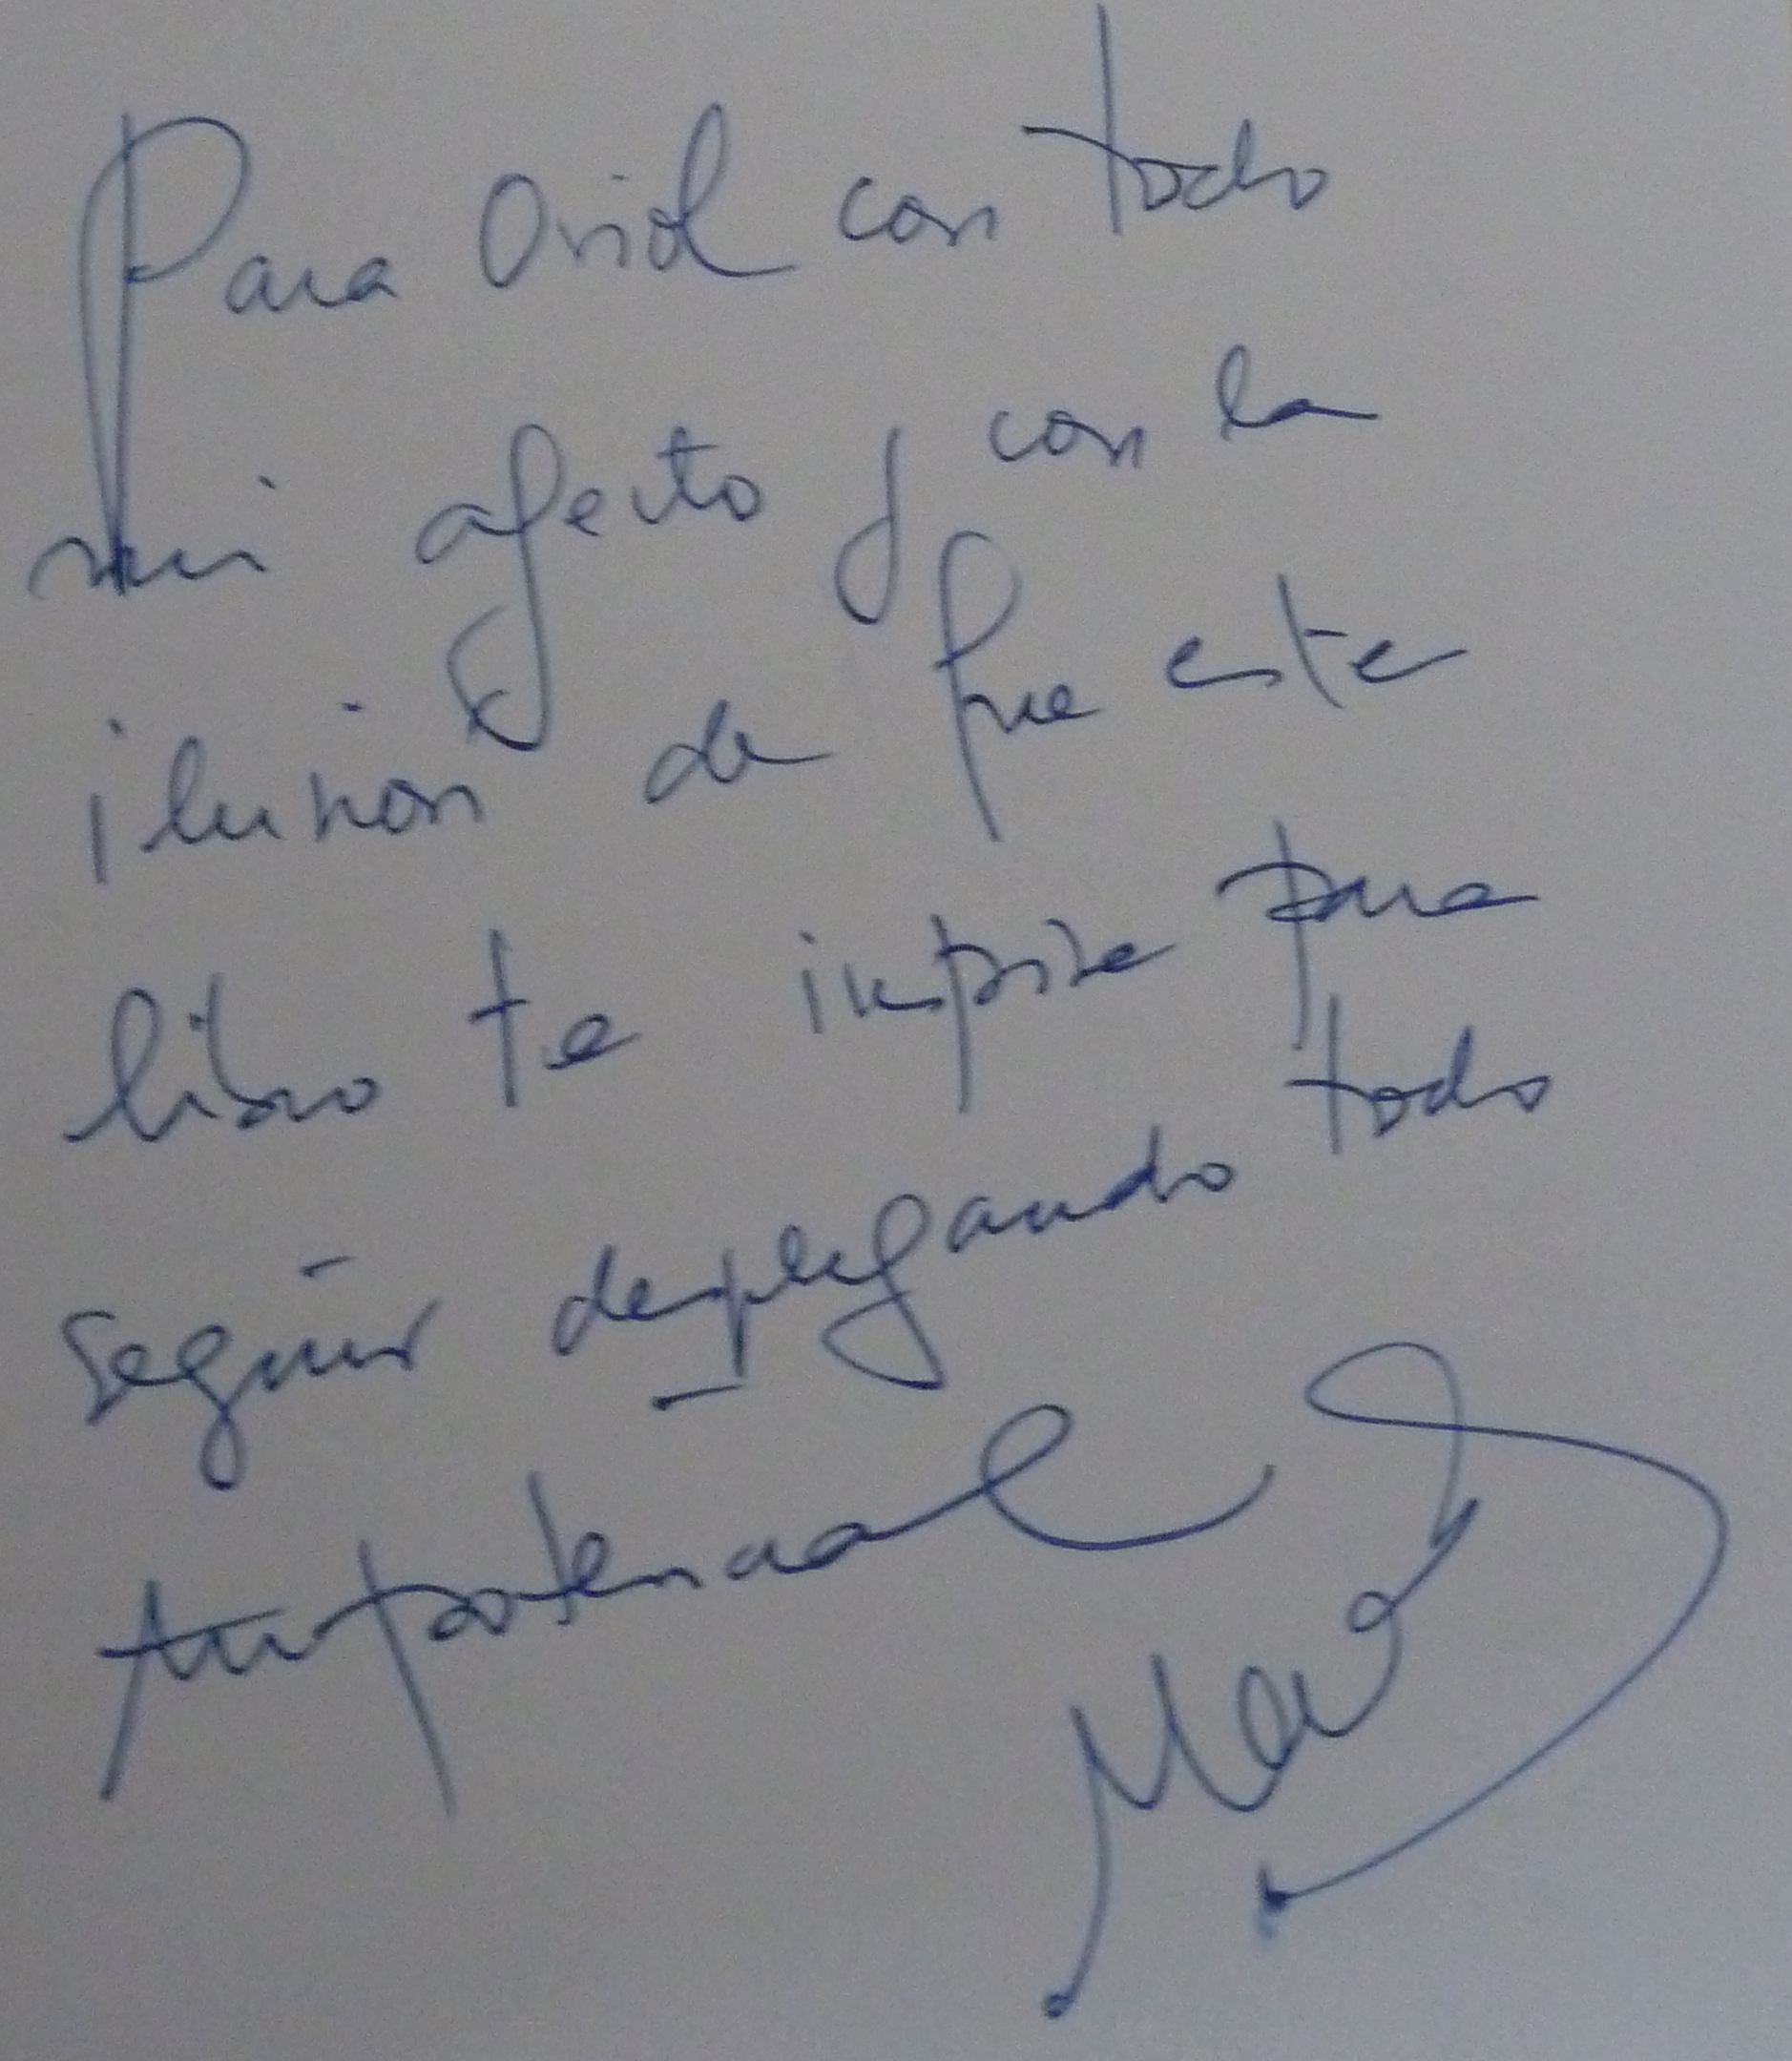 Para Oriol con todo
mi afecto y con la
ilusion de que este
libro te inspire para
seguir desplegando todo
tu potencial